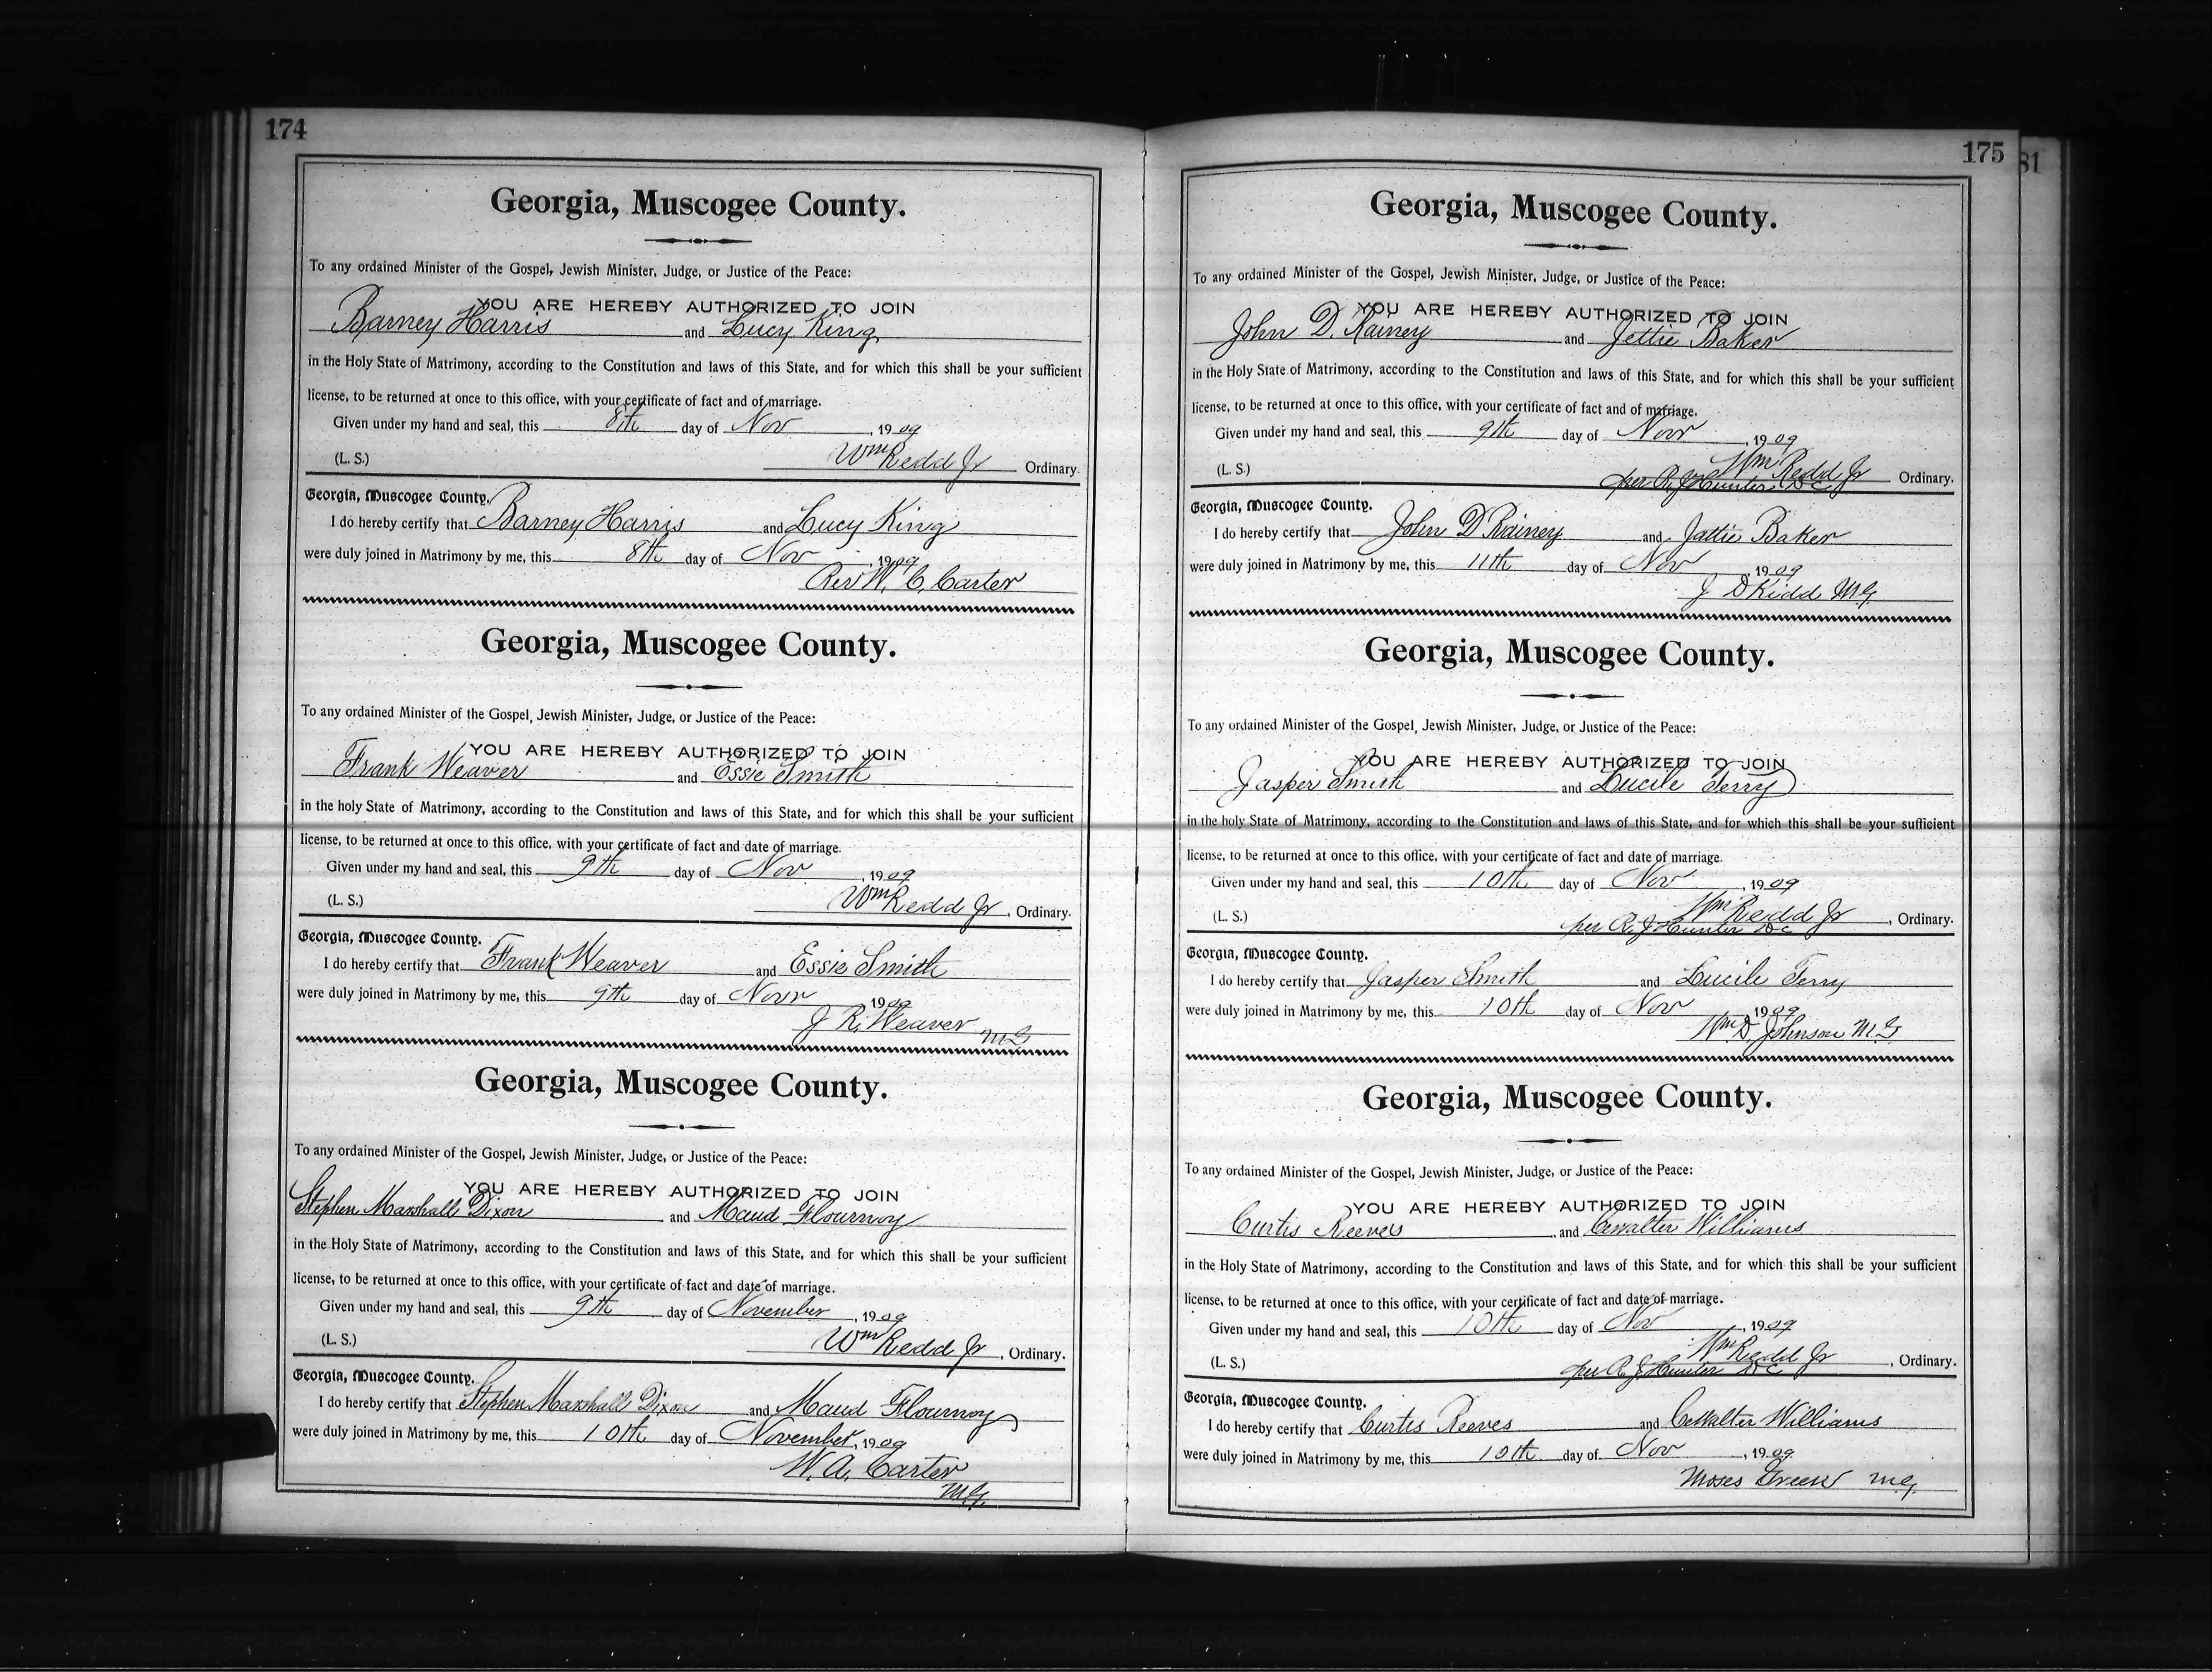 174
Georgia, Muscogee County.
To any ordained Minister of the Gospel, Jewish Minister, Judge, or Justice of the Peace:
YOU ARE HEREBY AUTHORIZED TO JOIN
Barney Harris and Lucy King
in the Holy State of Matrimony, according to the Constitution and laws of this State, and for which this shall be your sufficient
license, to be returned at once to this office, with your certificate of fact and of marriage.
Given under my hand and seal, this 8th day of Nov, 1909
(L. S.) Wm Redd Jr Ordinary.
Georgia, Muscogee County.
I do hereby certify that Barney Harris and Lucy King
were duly joined in Matrimony by me, this 8th day of Nov, 1909
Rev W. C. Carter
Georgia, Muscogee County.
To any ordained Minister of the Gospel, Jewish Minister, Judge, or Justice of the Peace:
YOU ARE HEREBY AUTHORIZED TO JOIN
Frank Weaver and Essie Smith
in the holy State of Matrimony, according to the Constitution and laws of this State, and for which this shall be your sufficient
license, to be returned at once to this office, with your certificate of fact and date of marriage.
Given under my hand and seal, this 9th day of Nov, 1909
(L. S.) Wm Redd Jr, Ordinary.
Georgia, Muscogee County.
I do hereby certify that Frank Weaver and Essie Smith
were duly joined in Matrimony by me, this 9th day of Novr 1909
J R. Weaver
MG
Georgia, Muscogee County.
To any ordained Minister of the Gospel, Jewish Minister, Judge, or Justice of the Peace:
YOU ARE HEREBY AUTHORIZED TO JOIN
Stephen Marshall Dixon and Maud Flournoy
in the Holy State of Matrimony, according to the Constitution and laws of this State, and for which this shall be your sufficient
license, to be returned at once to this office, with your certificate of fact and date of marriage.
Given under my hand and seal, this 9th day of November, 1909
(L. S.) Wm Redd Jr, Ordinary.
Georgia, Muscogee County.
I do hereby certify that Stephen Marshall Dixon and Maud Flournoy
were duly joined in Matrimony by me, this 10th day of November, 1909
W. A. Carter
MG.
175
81
Georgia, Muscogee County.
To any ordained Minister of the Gospel, Jewish Minister, Judge, or Justice of the Peace:
YOU ARE HEREBY AUTHORIZED TO JOIN
John D. Rainey and Jettie Baker
in the Holy State of Matrimony, according to the Constitution and laws of this State, and for which this shall be your sufficient
license, to be returned at once to this office, with your certificate of fact and of marriage.
Given under my hand and seal, this 9th day of Novr, 1909
Wm Redd Jr
(L. S.) per R. J. Hunter, D C, Ordinary.
Georgia, Muscogee County.
I do hereby certify that John D Rainey and Jettie Baker
were duly joined in Matrimony by me, this 11th day of Nov, 1909
J D Kidd MG
Georgia, Muscogee County.
To any ordained Minister of the Gospel, Jewish Minister, Judge, or Justice of the Peace:
YOU ARE HEREBY AUTHORIZED TO JOIN
Jasper Smith and Lucile Terry
in the holy State of Matrimony, according to the Constitution and laws of this State, and for which this shall be your sufficient
license, to be returned at once to this office, with your certificate of fact and date of marriage.
Given under my hand and seal, this 10th day of Nov, 1909
Wm Redd Jr
(L. S.) per R. J Hunter DC, Ordinary.
Georgia, Muscogee County.
I do hereby certify that Jasper Smith and Lucile Terry
were duly joined in Matrimony by me, this 10th day of Nov 1909
Wm D. Johnson M.G
Georgia, Muscogee County.
To any ordained Minister of the Gospel, Jewish Minister, Judge, or Justice of the Peace:
YOU ARE HEREBY AUTHORIZED TO JOIN
Curtis Reeves and Williams
in the Holy State of Matrimony, according to the Constitution and laws of this State, and for which this shall be your sufficient
license, to be returned at once to this office, with your certificate of fact and date of marriage.
Given under my hand and seal, this 10th day of Nov, 1909
Wm Redd Jr
(L. S.) per R. J. Hunter DC, Ordinary.
Georgia, Muscogee County.
I do hereby certify that Curtis Reeves and Williams
were duly joined in Matrimony by me, this 10th day of Nov, 1909
Moses Green MG.